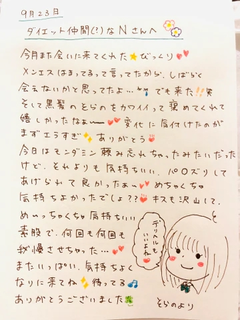 9月23日
ダイエット仲間(?)なNさんへ
今月また会いに来てくれた びっくり
メンエスはまってるって言ってたから、しばらく
会えないかと思ってたよ… でも来た!! 笑
そして黒髪のそらのをカワイイって褒めてくれて
嬉しかったなぁー 変化に気付けたのが
まずエラすぎ ありがとう
今日はモンダミン飲み忘れちゃったみたいだった
けど、それよりも気持ちいい、パ〇ズリして
あげられて良かったぁー めちゃくちゃ
気持ちよかったでしょ?? キスも沢山して、
めいっちゃくちゃ気持ちいい
素股で、何回も何回も
絶頂させちゃった…
またいっぱい、気持ちよく
なりに来てね 待ってる
ありがとうございました
デリヘルも
いいよね
そらのより